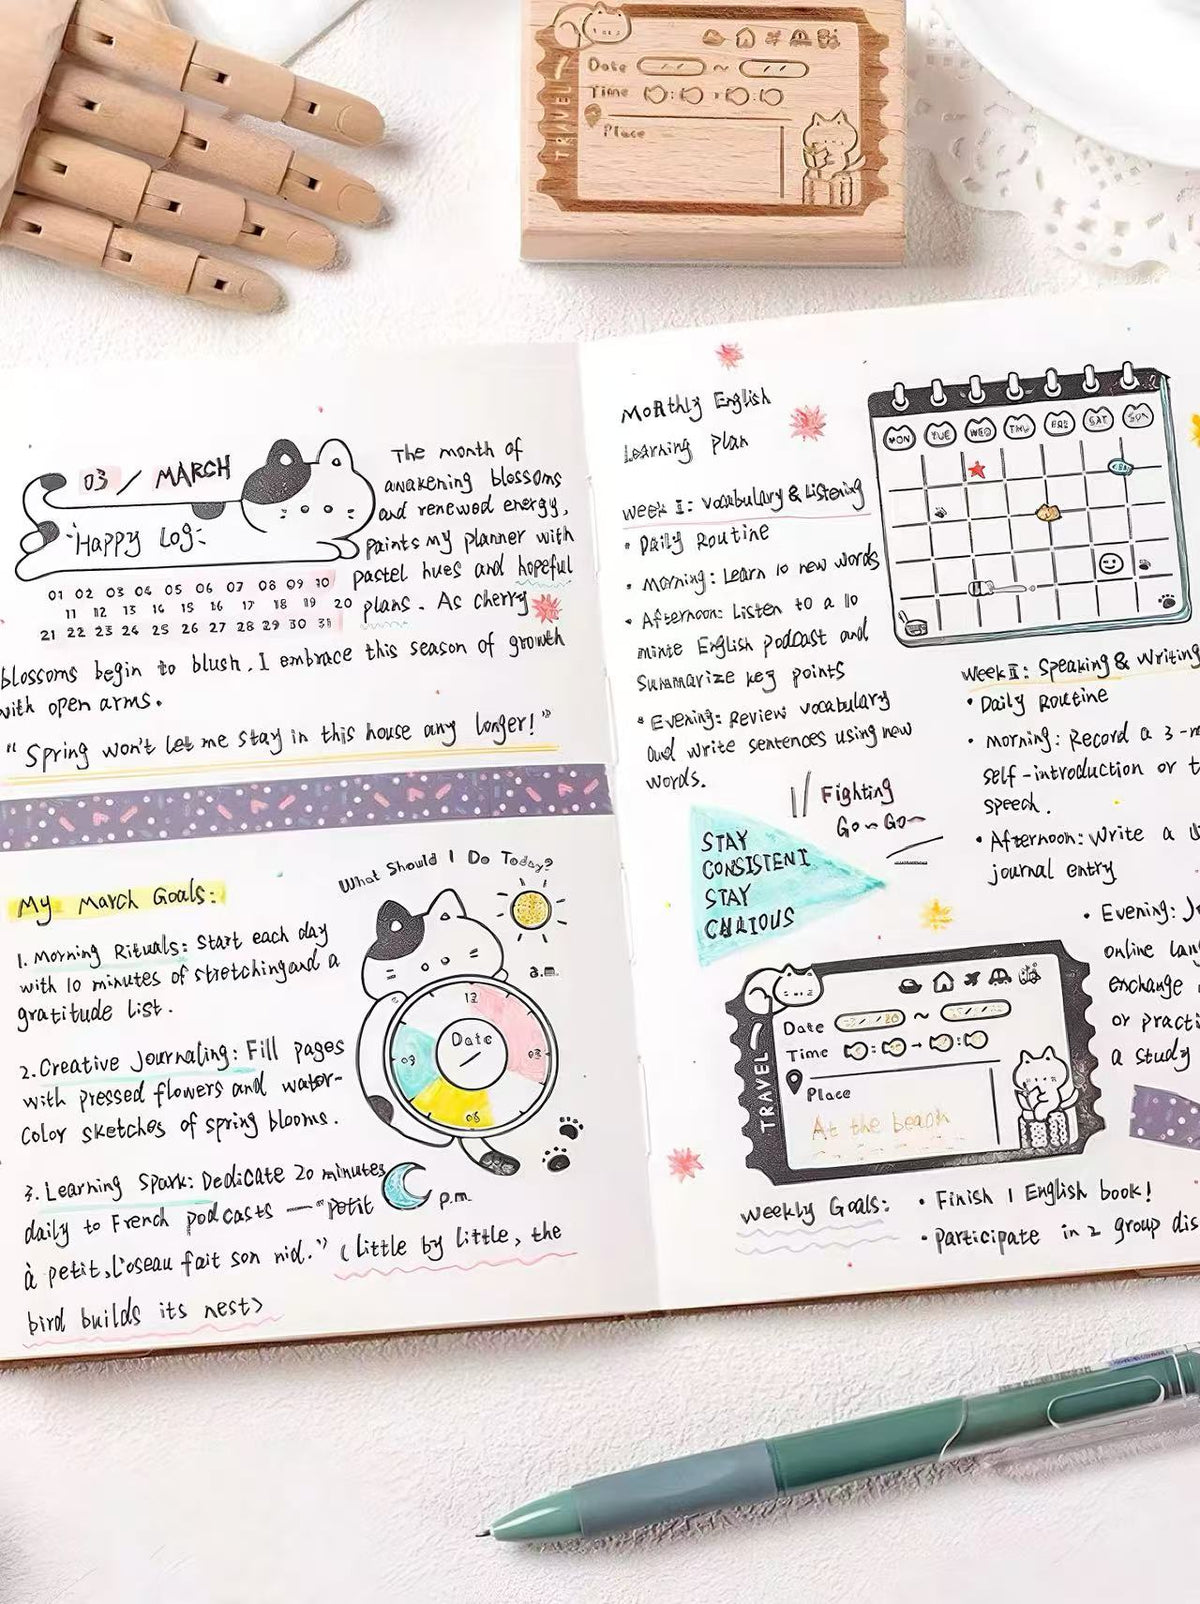 Date ~
Time : :
Place
TRAVEL
03 / MARCH
Happy Log
01 02 03 04 05 06 07 08 09 10
11 12 13 14 15 16 17 18 19 20
21 22 23 24 25 26 27 28 29 30 31
The month of
awakening blossoms
and renewed energy,
paints my planner with
pastel hues and hopeful
plans. As cherry
blossoms begin to blush, I embrace this season of growth
with open arms.
"Spring won't let me stay in this house any longer!"
My March Goals:
1. Morning Rituals: Start each day
with 10 minutes of stretching and a
gratitude list.
2. Creative Journaling: Fill pages
with pressed flowers and water-
color sketches of spring blooms.
3. Learning Spark: Dedicate 20 minutes
daily to French podcasts — "petit
à petit, l'oseau fait son nid." (little by little, the
bird builds its nest>
What Should I Do Today?
a.m.
12
03
06
09
Date
p.m.
Monthly English
Learning Plan
Week I: Vocabulary & Listening
• Daily Routine
• Morning: Learn 10 new words
• Afternoon: Listen to a 10
minte English podcast and
Summarize key points
• Evening: Review vocabulary
and write sentences using new
words.
MON TUE WED THU FRI SAT SUN
Week II: Speaking & Writing
• Daily Routine
• Morning: Record a 3-m
self-introduction or t
speech.
• Afternoon: Write a
journal entry
• Evening: J
online lan
exchange
or practi
a study
Fighting
Go~Go~
STAY
CONSISTENT
STAY
TRAVEL
Date ~
Time : → :
Place
At the beach
Weekly Goals:
• Finish 1 English book!
• Participate in 2 group dis